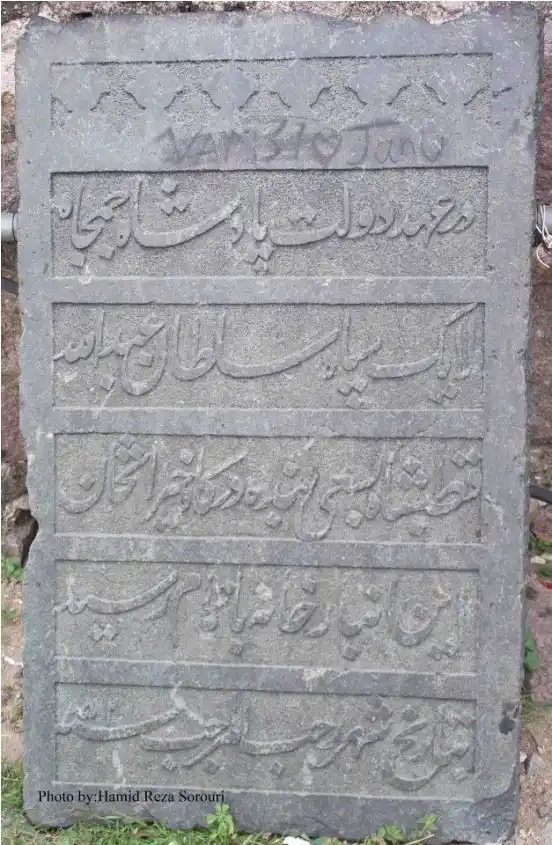 در عهد دولت پادشاه جمجاه
ملایک سپاه سلطان عبدالله
قطبشاه بسعی بنده درگاه خیراتخان
این انبارخانه باتمام رسید
بتاریخ شهر رجب المرجب سنه
Photo by:Hamid Reza Sorouri